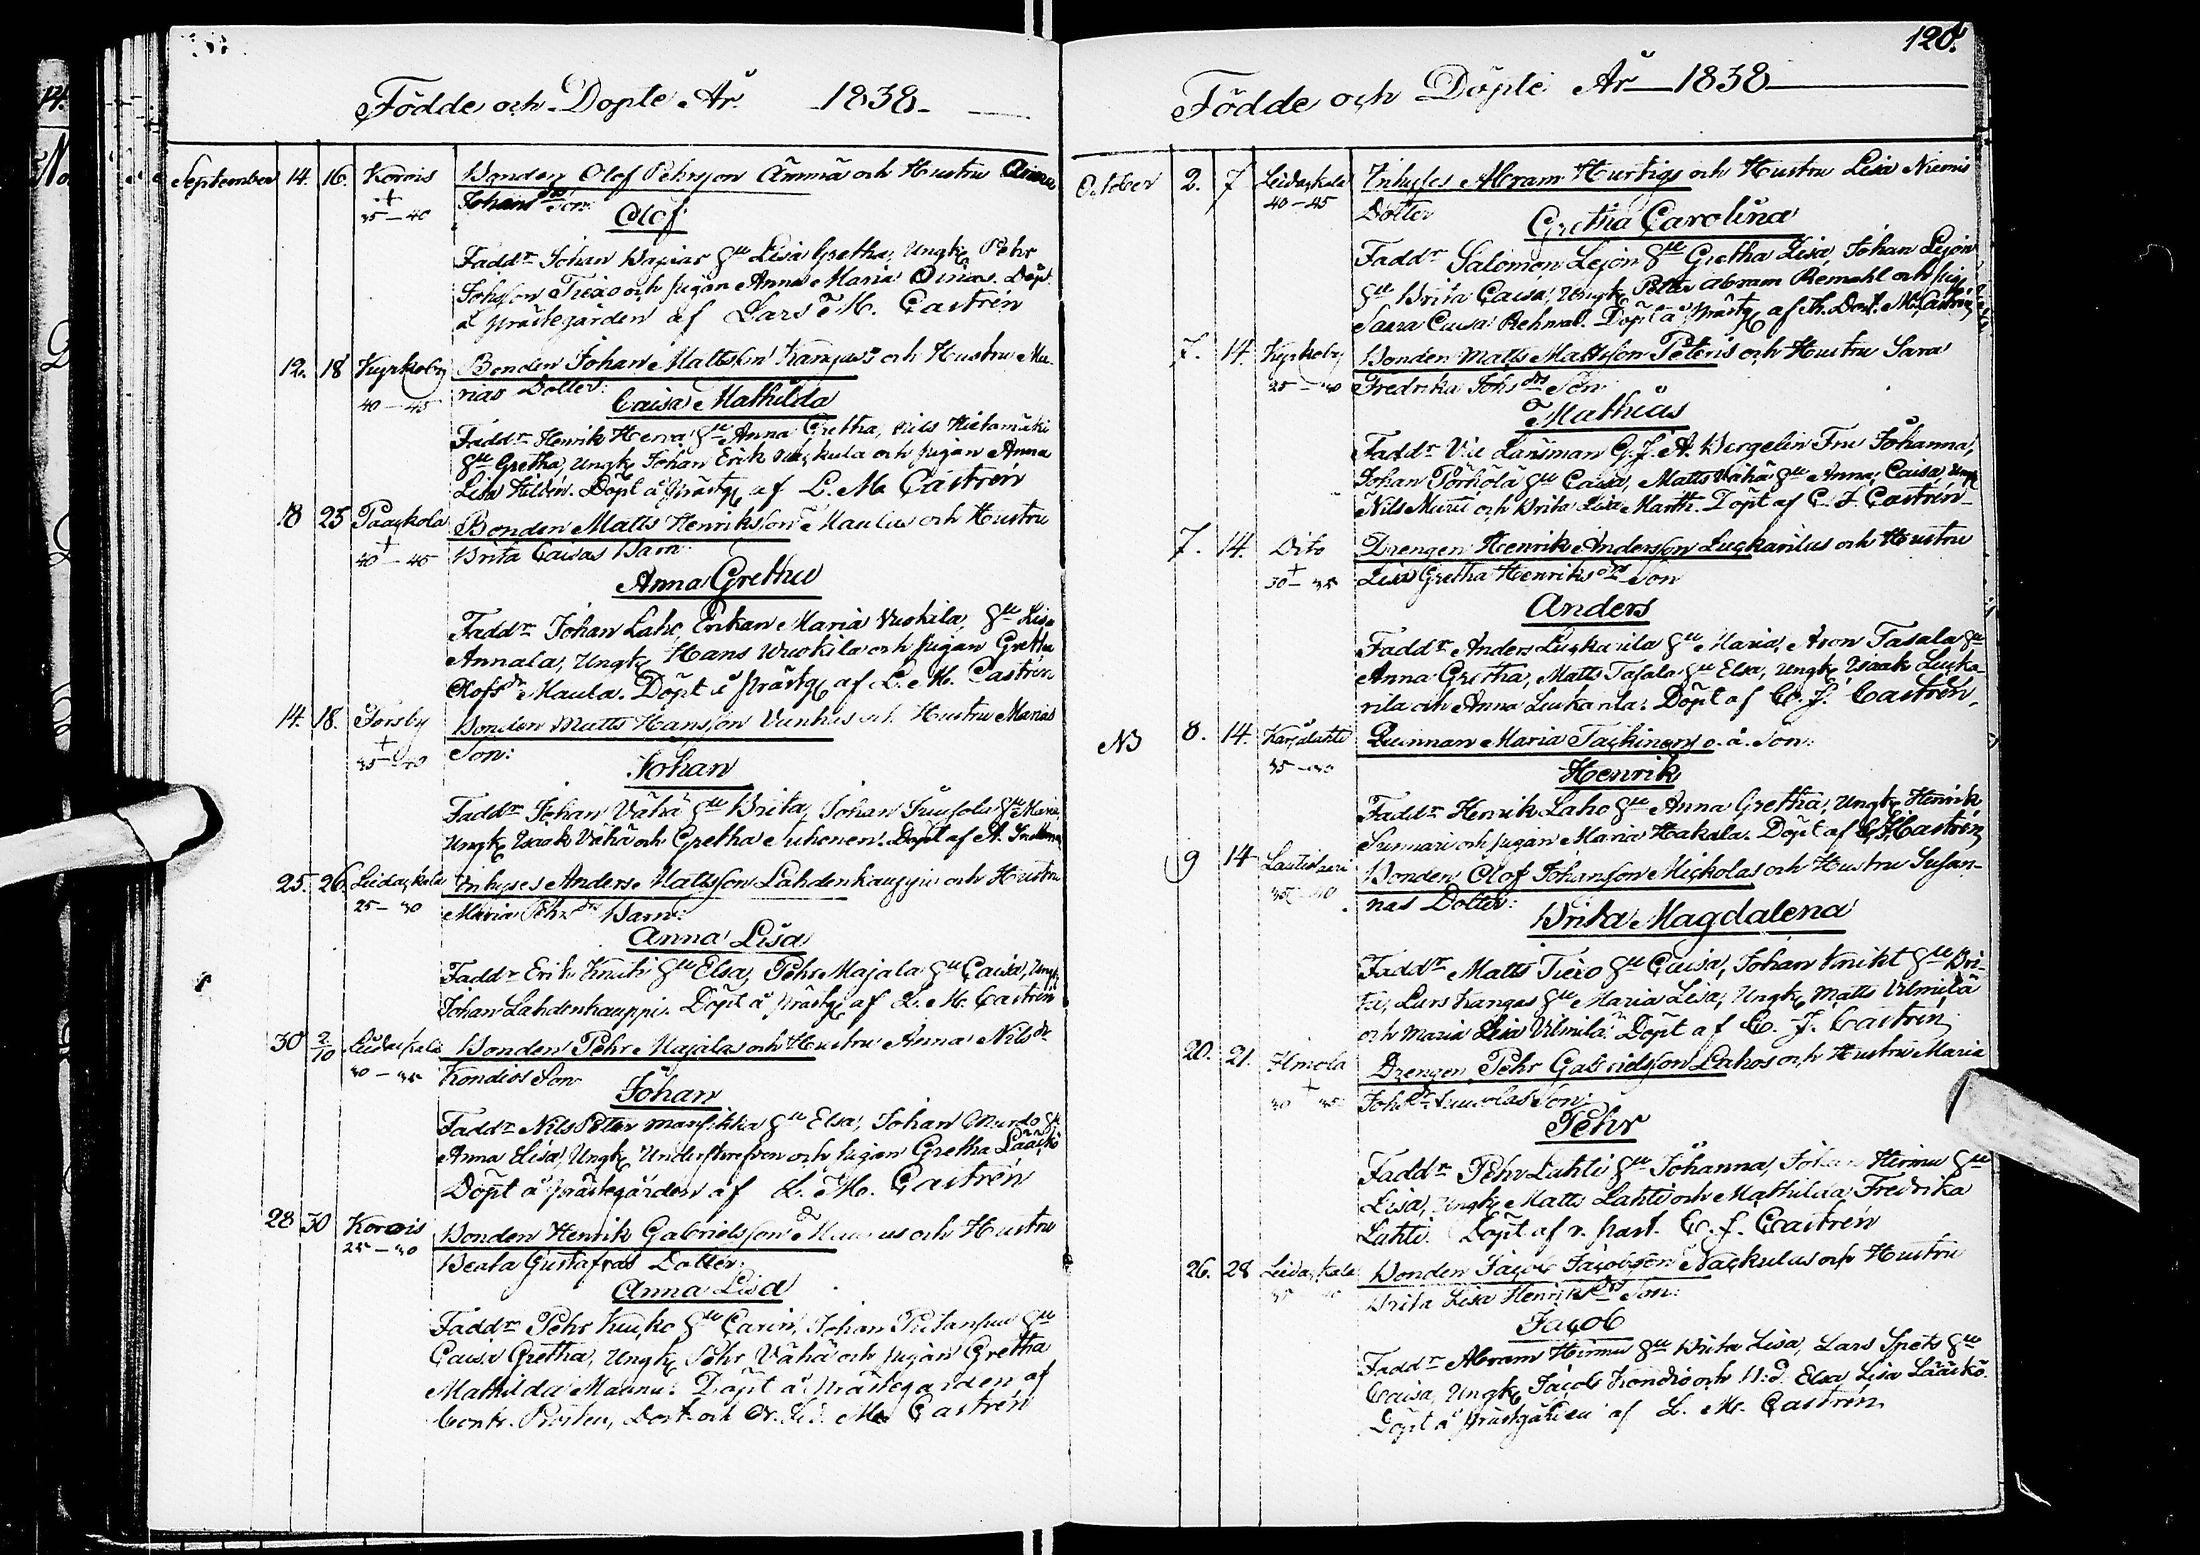 Födde och Döpte År 1838
September 14. 16. Korois Bonden Olof Pehrsson Ämmä och Hustru Anna
35–40 Johansdr Son:
Olof
Faddr Johan gu Lisa Gretha, Ungk Pehr
Johsson Tiexo och pigan Anna Maria Döpt
å prästegården af Lars M. Castrén
12. 18 Kyrkoby Bonden Johan Mattsson Kampus och Hustru Ma-
40–45 rias Dotter:
Caisa Mathilda
Faddr Henrik Herva gu Anna Gretha, Nils Hietamäki
gu Gretha, Ungk Johan Erik och pigan Anna
Lisa Döpt å prästg af L. M. Castrén
18 25 Paackola Bonden Matts Henriksson Maulus och Hustru
40–45 Brita Caisas Barn:
Anna Gretha
Faddr Johan Laho, Enkan Maria Ruokila, gu Lisa
Annala, Ungk Hans Ruokila och pigan Gretha
Olofsdr Maula. Döpt å prästg af L. M. Castrén
14. 18. Torsby Bonden Matts Hansson och Hustru Marias
35–40 Son:
Johan
Faddr Johan Vähä gu Brita, Johan gu Maria,
Ungk Isaak Vähä och Gretha Juhonen. Döpt af A.
25. 26. Liedackala Inhyses Anders Mattsson Lahdenkauppi och Hustru
25–30 Maria Pehrsdrs Barn:
Anna Lisa
Faddr Erik Knuti gu Elsa, Pehr Majala gu Caisa, Ungk
Johan Lahdenkauppi. Döpt å prästg af L. M. Castrén
30 2/10 Liedackala Bonden Pehr Majalas och Hustru Anna Nilsdr
30–35 Kondios Son
Johan
Faddr Nils Petter Mansikka gu Elsa, Johan Murdo gu
Anna Elisa, Ungk och pigan Gretha Lääckö
Döpt å prästegården af L. M. Castrén
28 30 Korois Bonden Henrik Gabrielsson och Hustru
25–30 Beata Gustafvas Dotter:
Anna Lisa
Faddr Pehr Kucko gu Carin, Johan gu
Caisa Gretha, Ungk Pehr Vähä och pigan Gretha
Mathilda Maunu. Döpt å prästegården af
Contr. Prosten, Doct. och M. Castrén
120.
Födde och Döpte År 1838
October 2. 7 Liedackala Inhyses Abram Hurtigs och Hustru Lisa Niemis
40–45 Dotter
Gretha Carolina
Faddr Salomon Lejon gu Gretha Lisa, Johan Lejon
gu Brita Caisa, Ungk Petter Abram Remahl och pig
Saara Caisa Rehmal. Döpt å prästg af Th. Doct. M. Castrén
7. 14. Kyrkoby Bonden Matts Mattsson Peteris och Hustru Sara
25–30 Fredrika Johsdrs Son
Mathias
Faddr Vic Länsman G. J. A. Bergelin Fru Johanna,
Johan Pörhölä gu Caisa, Matts Vähä gu Anna Caisa, Ungk
Nils Murti och Brita Lisa Martti. Döpt af C. J. Castrén
7. 14. Dito Drengen Henrik Andersson Luckarilas och Hustru
30–35 Lisa Gretha Henriksdrs Son
Anders
Faddr Anders Luckarila gu Maria, Aron Tasala gu
Anna Gretha, Matts Tasala gu Elsa, Ungk Isaak Lucka-
rila och Anna Luckarila. Döpt af C. J. Castrén.
NB 8. 14. Karjalahti Quinnan Maria Tackinens o. ä. Son:
35–
Henrik
Faddr Henrik Laho gu Anna Gretha, Ungk Henrik
Sunnari och pigan Maria Hakala. Döpt af Castrén
9 14 Lautiosaari Bonden Olof Johansson Mickolas och Hustru Susan-
35–40 nas Dotter:
Brita Magdalena
Faddr Matts Tiexo gu Caisa, Johan Knikt gu Bri-
ta, Lars Kangas gu Maria Lisa, Ungk Matts Vilmilä
och Maria Lisa Vilmilä. Döpt af C. J. Castrén
20. 21. Ilmola Drengen Pehr Gabrielsson Lahos och Hustru Maria
30 35 Johsdr Son:
Pehr
Faddr Pehr Lahti gu Johanna, Johan Hirmu gu
Lisa, Ungk Matts Lahti och Mathilda Fredrika
Lahti. Döpt af v. past. C. J. Castrén
26. 28 Liedackala Bonden Jacob Jacobsson Nackulas och Hustru
35 Brita Lisa Henriksdrs Son:
Jacob
Faddr Abram Hirmu gu Brita Lisa, Lars Spets gu
Caisa, Ungk Jacob Kondio och B.D. Elsa Lisa Lääckö.
Döpt å prästgården af L. M. Castrén